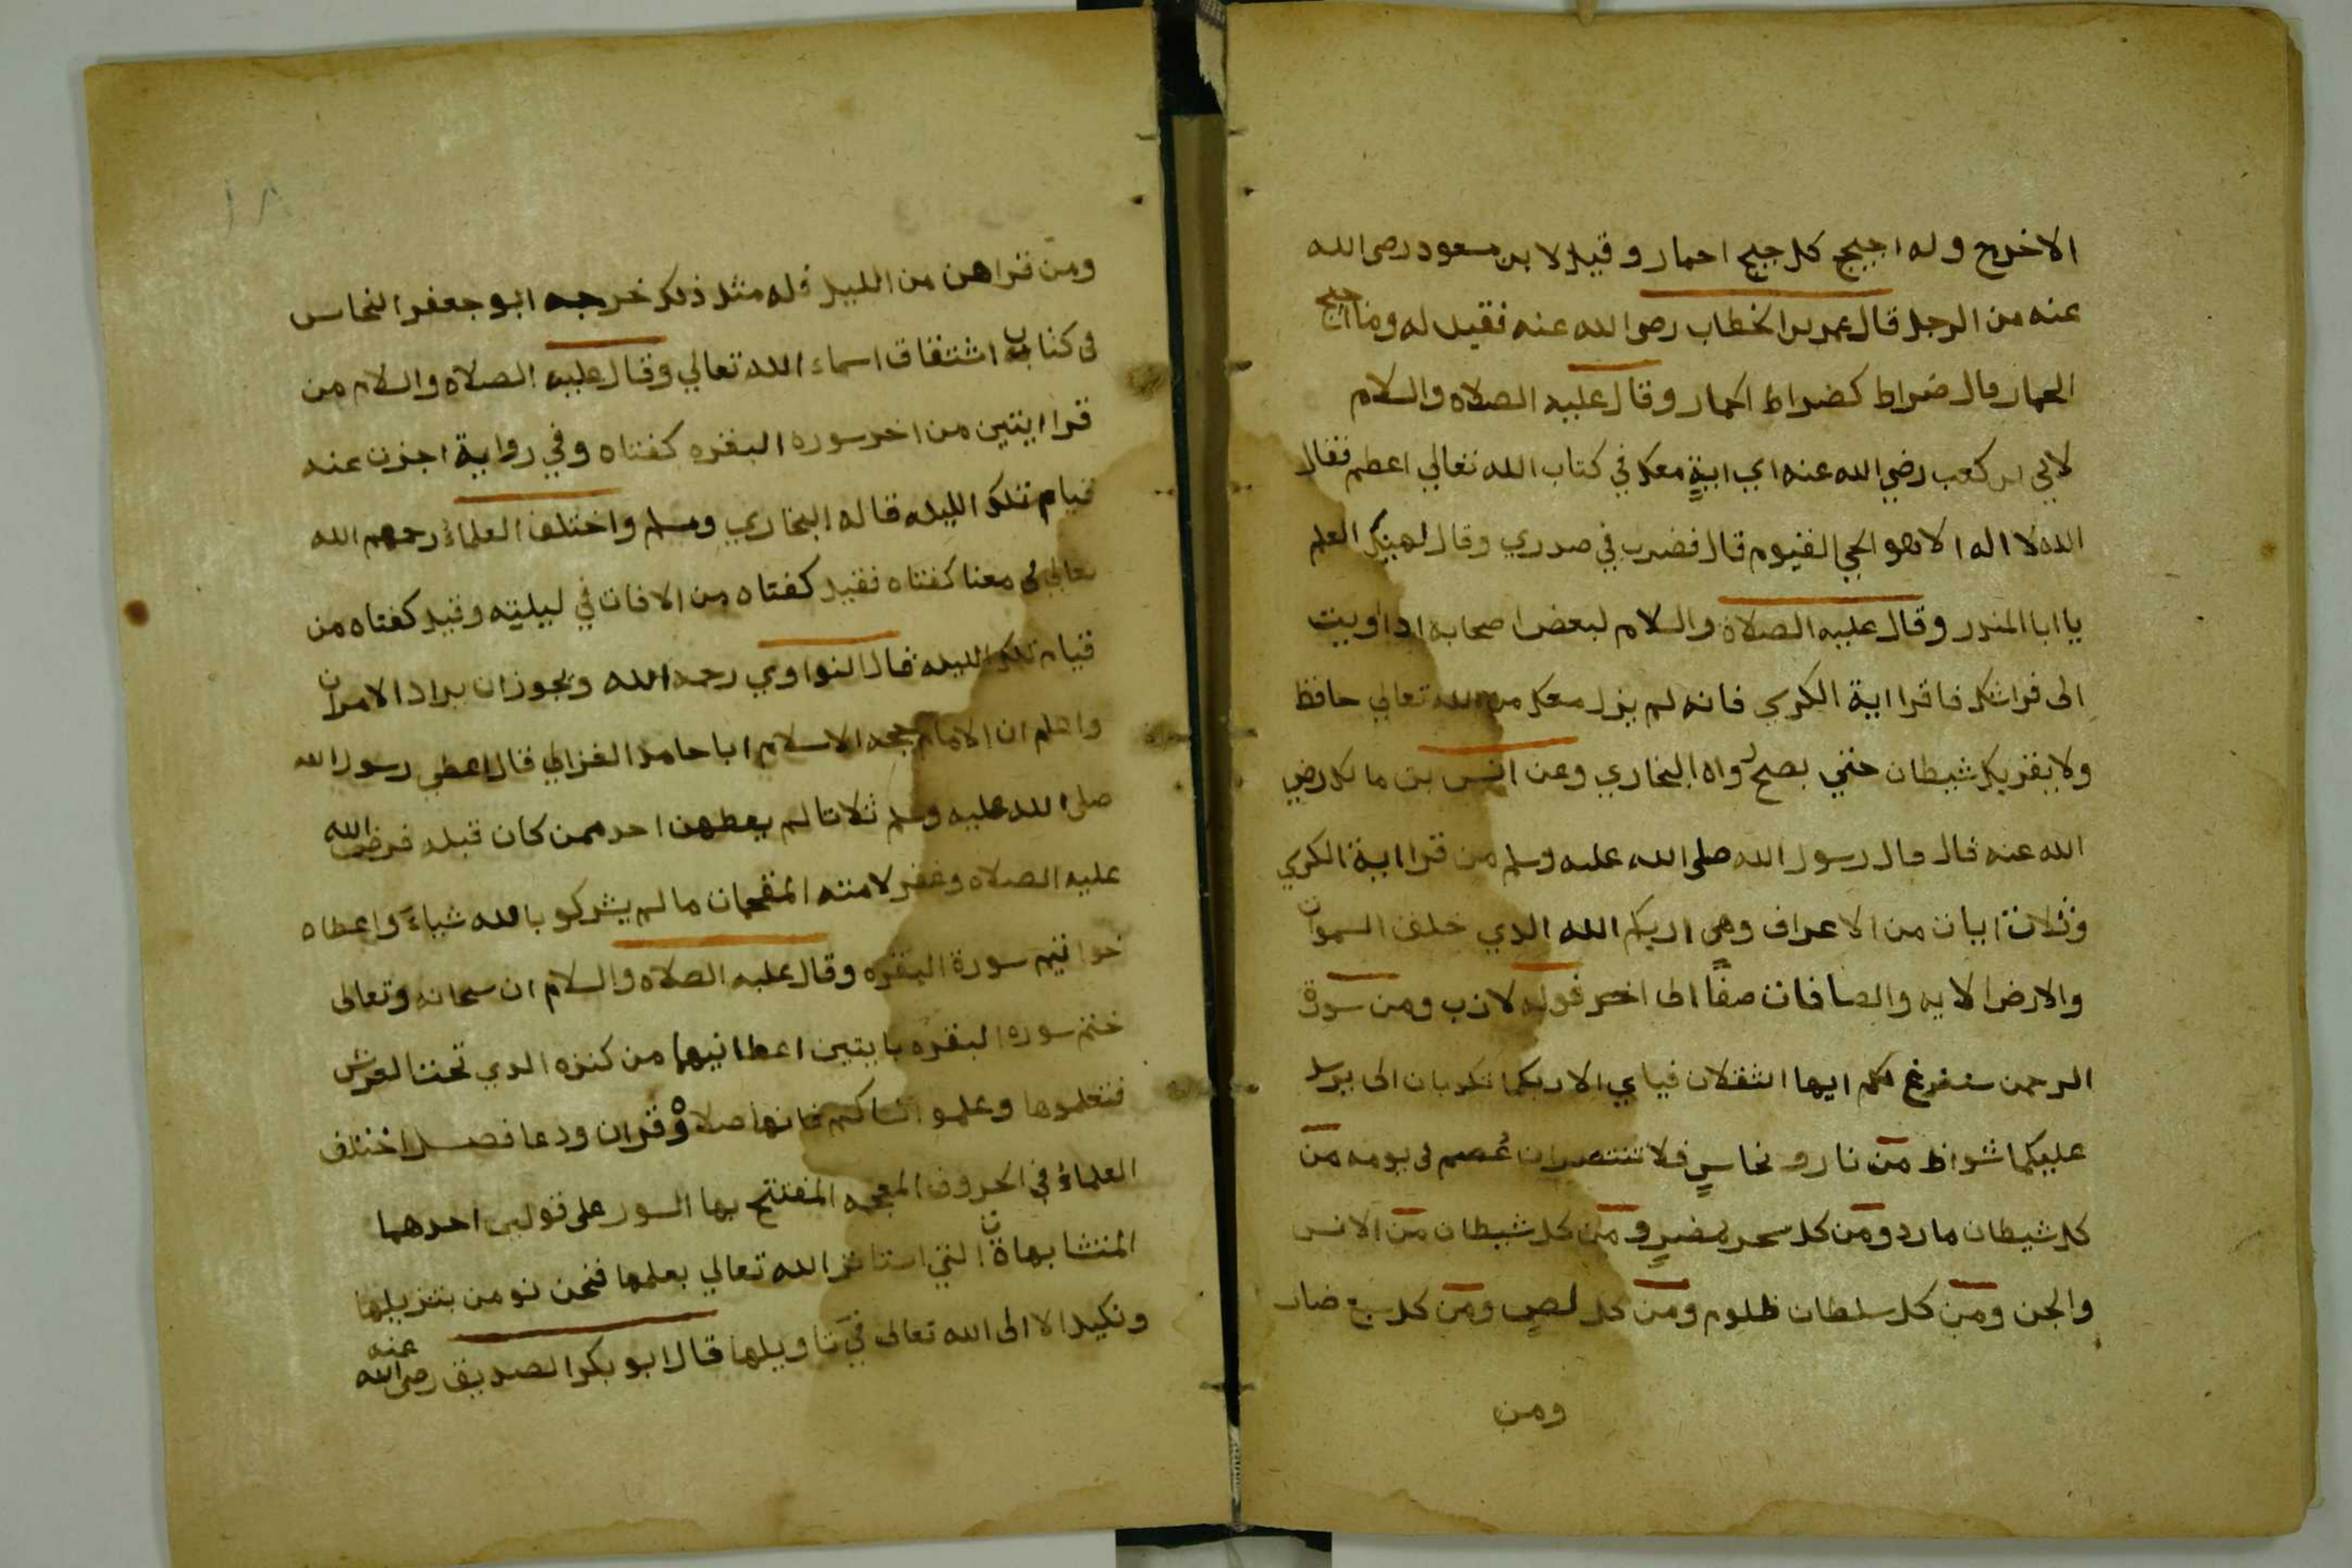 الاخرج وله اجيج كل جيج احمار وقيل لابن مسعود رضى الله
عنه من الرجل قال عمر بن الخطاب رضى الله عنه فقيل له وما
الحمار قال ضراط كضراط الحمار وقال عليه الصلاه والسلام
لابي بن كعب رضي الله عنه اي ايةٍ معك في كتاب الله تعالي اعظم فقال
الله لا اله الا هو الحي القيوم قال فضرب في صدري وقال لهينك العلم
يا ابا المندر وقال عليه الصلاة والسلام لبعض اصحابه ادا اويت
الى فراشك فاقرا اية الكرسي فانه لم يزل معك من الله تعالي حافظ
ولا يقربك شيطان حتي يصبح رواه البخاري وعن انس بن مالك رضي
الله عنه قال قال رسول الله صلى الله عليه وسلم من قرا اية الكرسي
وثلاث ايات من الاعراف وهي ان ربكم الله الدي خلق السموات
والارض الايه والصافات صفًا الى اخر قوله لازب ومن سورة
الرحمن سنفرغ لكم ايها الثقلان فباي الاء ربكما تكدبان الى يرسل
عليكما شواظ من نار ونحاسٍ فلا تنتصران عُصم في يومه من
كل شيطان مارد ومن كل سحر مضرٍ ومن كل شيطان من الانس
والجن ومن كل سلطان ظلوم ومن كل لصٍ ومن كل سبع ضار
ومن
١٨
ومن قراهن من الليل فله مثل ذلك خرجه ابو جعفر النحاس
فى كتاب اشتقاق اسماء الله تعالي وقال عليه الصلاه والسلام من
قرا ايتين من اخر سورة البقره كفتاه وفي رواية اجزت عنه
قيام تلك الليله قاله البخاري ومسلم واختلف العلماء رحمهم الله
تعالي في معنا كفتاه فقيل كفتاه من الافات في ليليته وقيل كفتاه من
قيام تلك الليله قال النواوي رحمه الله ويجوز ان يراد الامران
واعلم ان الامام حجه الاسلام ابا حامد الغزالي قال اعطي رسول الله
صلى الله عليه وسلم ثلاثا لم يعطهن احد ممن كان قبله فرض الله
عليه الصلاه وغفر لامته المقحمات ما لم يشركو بالله شياء واعطاه
خواتيم سورة البقره وقال عليه الصلاه والسلام ان سبحانه وتعالى
ختم سوره البقره بايتين اعطانيهما من كنزه الدي تحت العرش
فتعلموها وعلمو انساكم فانها صلاه وقران ودعا فصل اختلف
العلماء في الحروف المعجمه المفتتح بها السور على قولين احدهما
المتشابهاة التي استاثر الله تعالي بعلمها فنحن نومن بتنزيلها
ونكيل الا الى الله تعالى في تاويلها قال ابو بكر الصديق رضى الله عنه